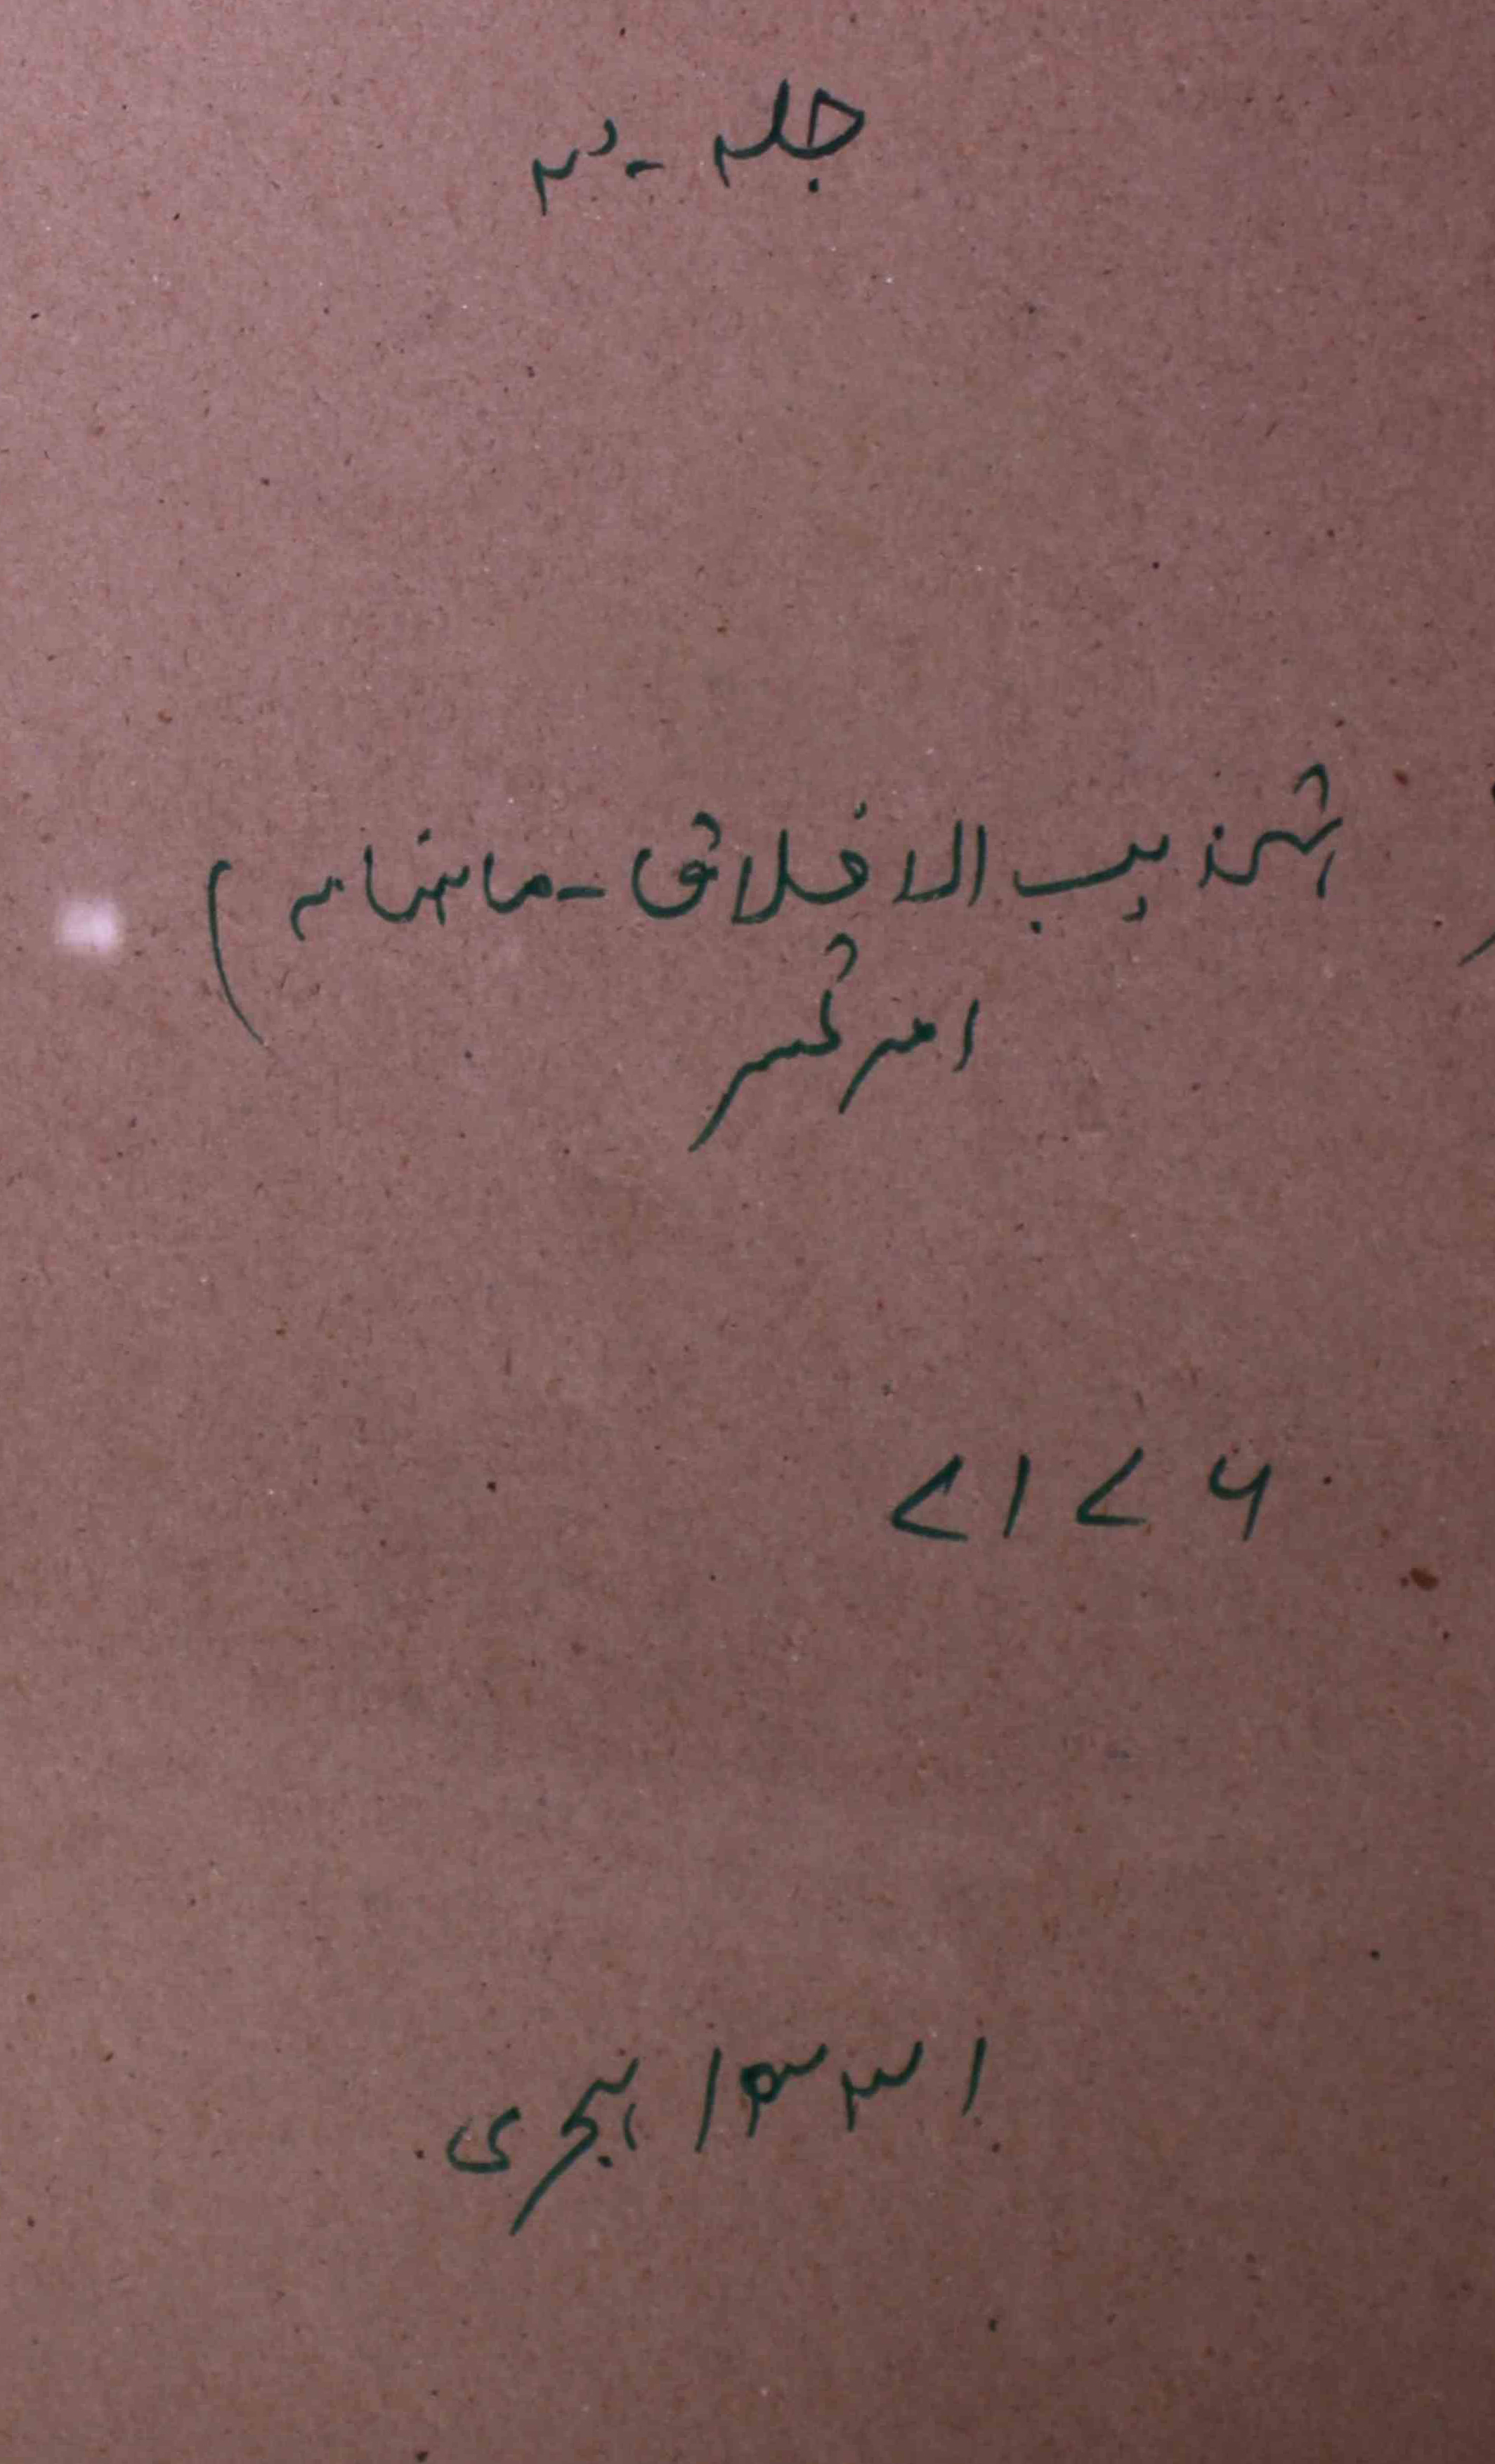 جلد - ۳
(تہذیب الاخلاق - ماہنامہ)
امرتسر
۷۱۷۶
۱۳۳۱ ہجری